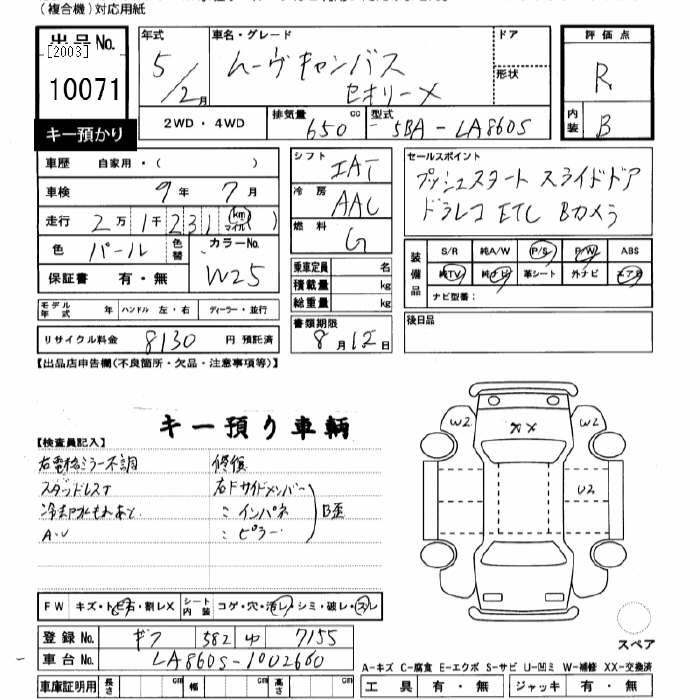 (複合機)対応用紙
出品No.
[2003]
10071
キー預かり
年式
5/2月
車名・グレード
ムーヴキャンバス
セオリーメ
ドア
形状
評価点
R
内装
B
2WD・4WD
排気量
650
cc
型式
5BA-LA860S
車歴 自家用・( )
車検 9年 7月
走行 2万1千231 km マイル ( )
色 パール
色替
カラーNo.
W25
保証書 有・無
モデル年式 年 ハンドル 左・右 ディーラー・並行
リサイクル料金 8130 円 預託済
シフト IAT
冷房 AAC
燃料 G
乗車定員 名
積載量 kg
総重量 kg
書類期限
8月12日
セールスポイント
プッシュスタート スライドドア
ドラレコ ETC Bカメラ
装備品
S/R 純A/W P/S P/W ABS
純TV 純ナビ 革シート 外ナビ エアB
ナビ型番:
後日品
【出品店申告欄(不良箇所・欠品・注意事項等)】
キー預り車輌
【検査員記入】
右電格ミラー不調
スタッドレスT
冷却水もれあと
A・U
修復
右Fサイドメンバー
〃 インパネ
〃 ピラー
B歪
W2
XX
W2
U2
スペア
FW キズ・トビ石・割レX
シート内装 コゲ・穴・汚レ・シミ・破レ・スレ
登録No. ギフ 582 ゆ 7155
車台No. LA860S-1002660
車庫証明用 長さ cm 幅 cm 高さ cm
A-キズ C-腐食 E-エクボ S-サビ U-凹ミ W-補修 XX-交換済
工具 有・無 ジャッキ 有・無